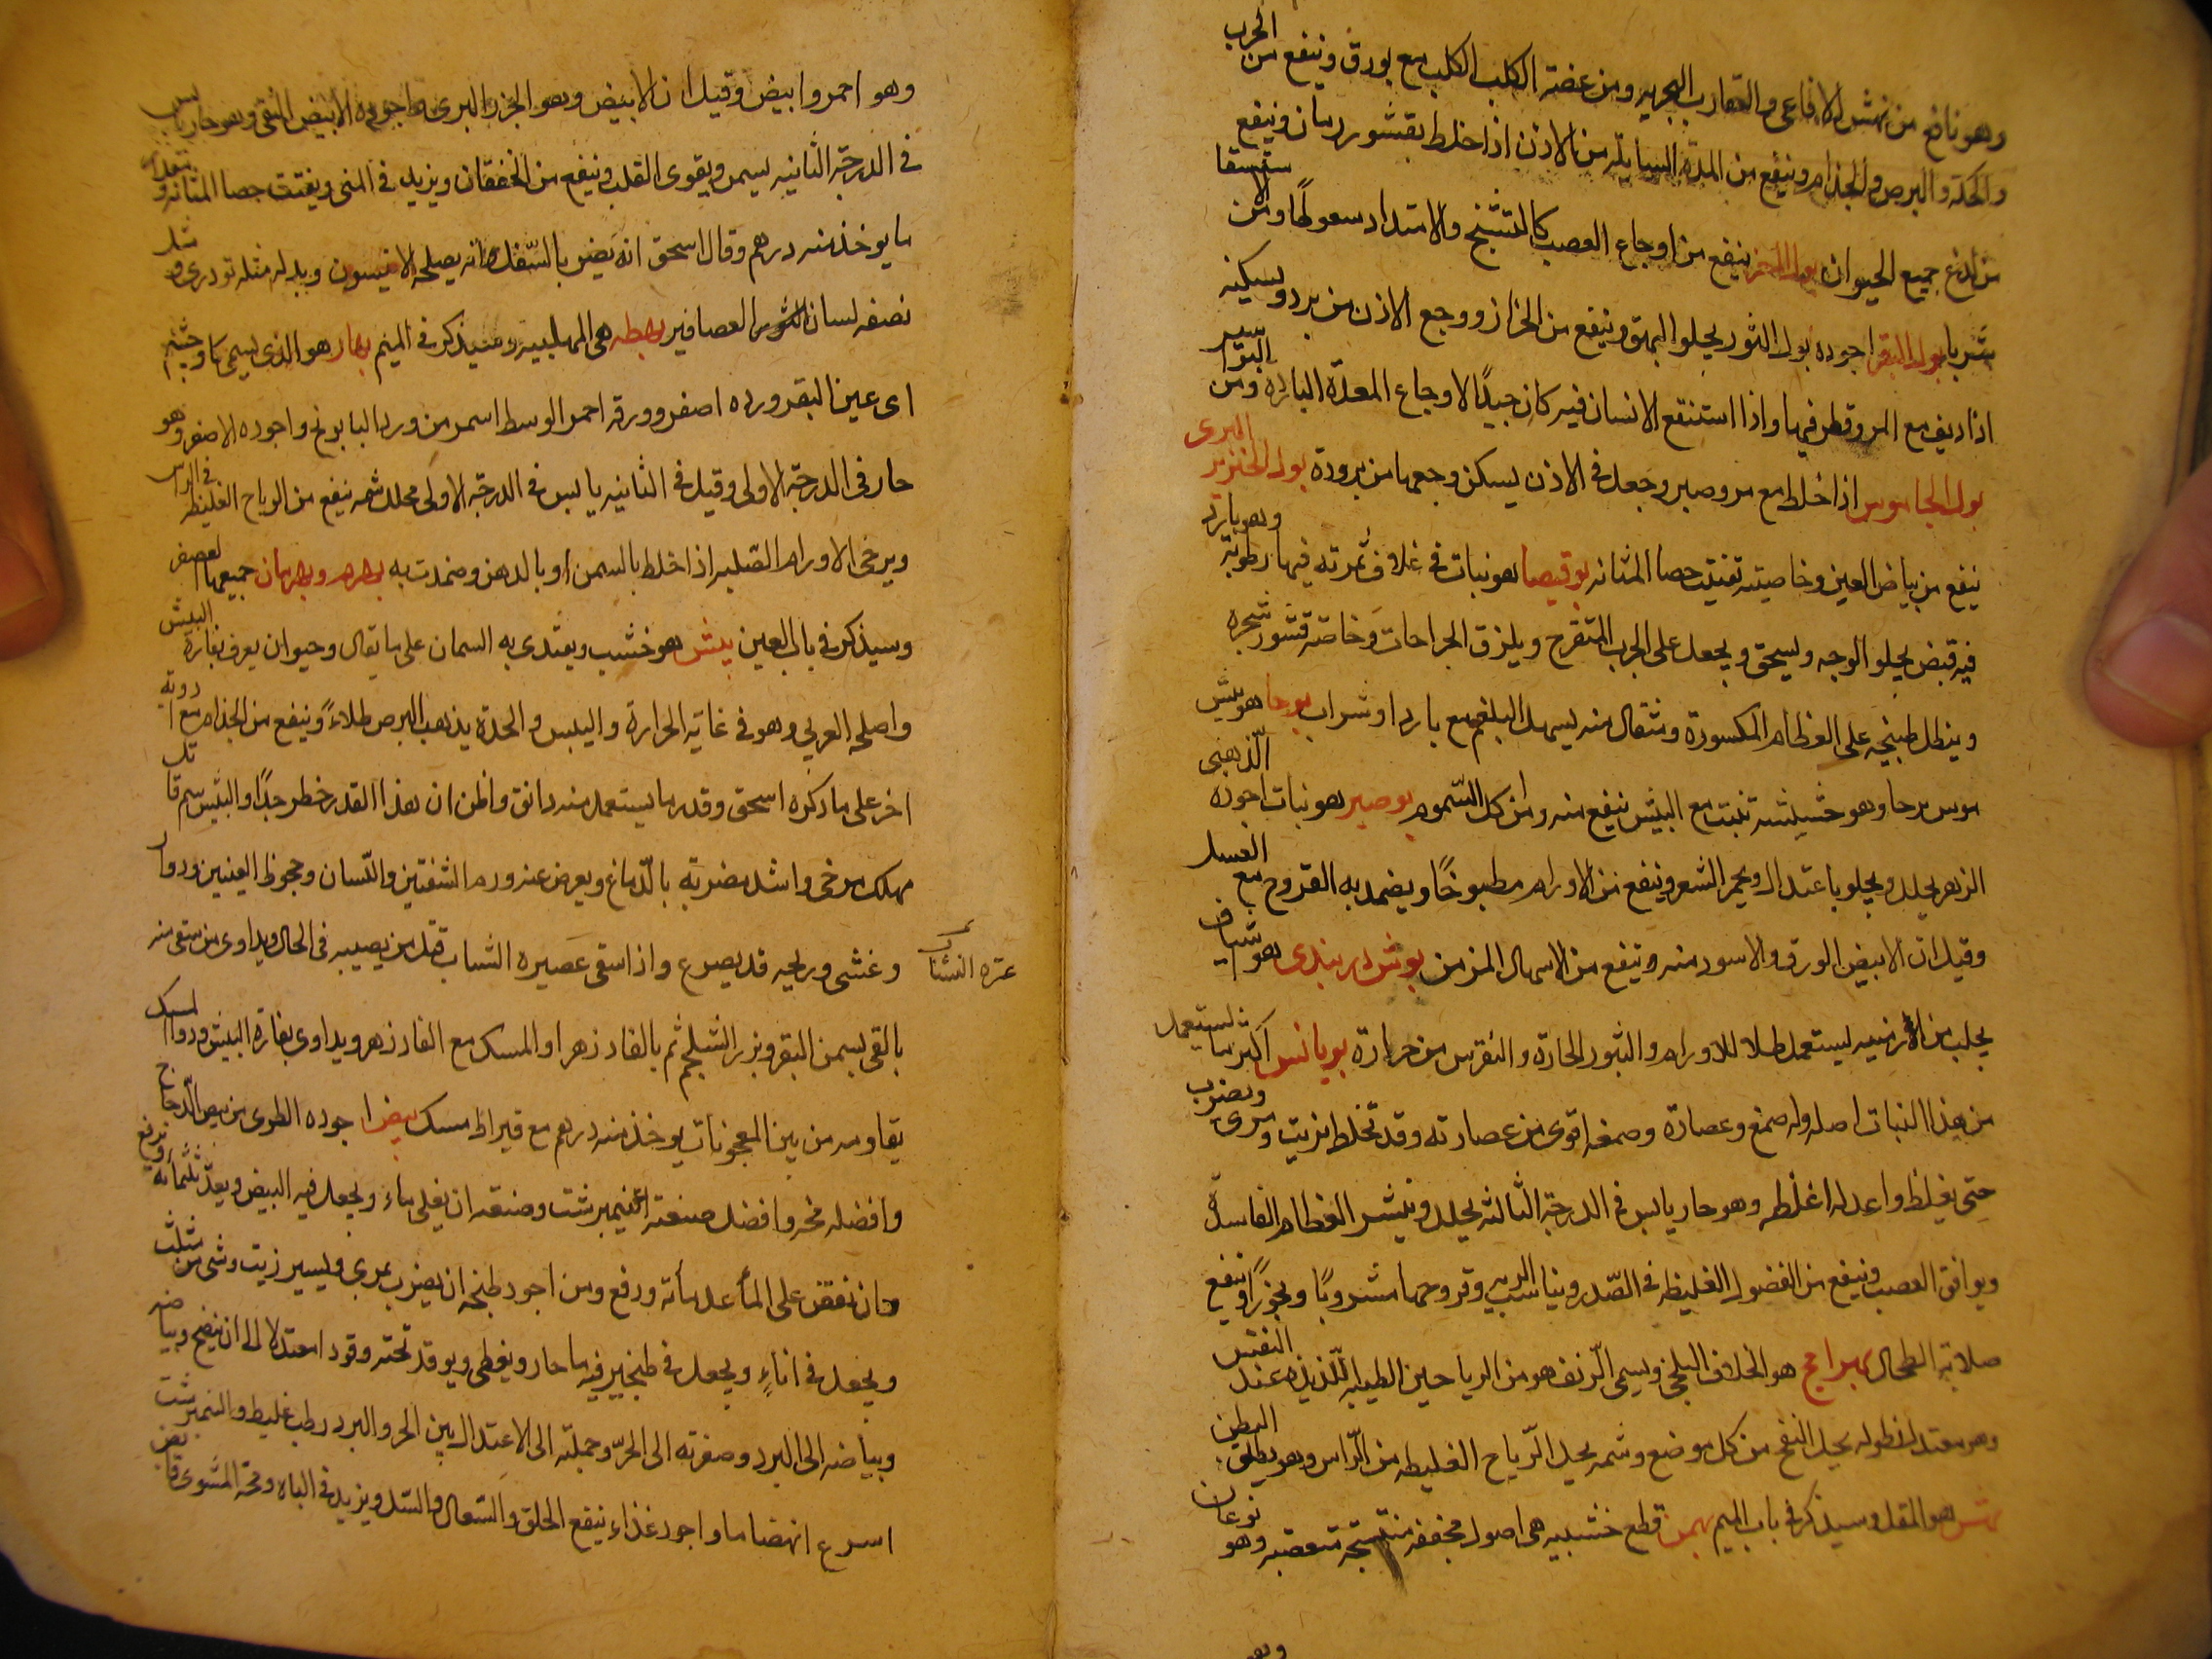 وهو نافع من نهش الافاعى والعقارب البحريه ومن عضة الكلب الكلب مع بورق وينفع من الجرب
والحكة والبرص والجذام وينفع من المدة السايلة من الاذن اذا خلط بقشور رمان وينفع
من لدغ جميع الحيوان بول العنز ينفع من اوجاع العصب كالتشنج والامتداد سعوطا ومن الاستسقا
شربا بول البقر اجوده بول الثور يجلو البهق وينفع من الحزاز ووجع الاذن من برد ويسكنه
اذا ديف مع المر وقطر فيها واذا استنقع الانسان فيه كان جيدًا لاوجاع المعدة الباردة ومن البواسير
بول الجاموس اذا خلط مع مر وصبر وجعل فى الاذن يسكن وجعها من برودة بول الخنزير البرى
ينفع من بياض العين وخاصيته تفتيت حصا المثانه بوقيصا هو نبات فى غلاف ثمرته فيها رطوبة وهو بارد
فيه قبض يجلو الوجه ويسحق ويجعل على الجرب المتقرح ويلزق الجراحات وخاصة قشور شجره
وينطل طبيخه على العظام المكسورة ومثقال منه يسهل البلغم مع بارد او شراب بوحا هو بيش
موس بوحا وهو حشيشه تنبت مع البيش ينفع منه ومن كل السموم بوصير هو نبات اجوده الذهبى
الزهر يحلل ويجلو باعتدال ويحمر الشعر وينفع من الاورام مطبوخًا ويضمد به القروح مع العسل
وقيل ان الابيض الورق والاسود منه وينفع من الاسهال المزمن بوش دربندى هو شياف
يجلب من الارمنيه يستعمل طلا للاورام والبثور الحارة والنقرس من حرارة بويانس اكثر ما يستعمل
من هذا النبات اصله وله صمغ وعصارة وصمغه اقوى من عصارته وقد تخلط بزيت ومرى ويضرب
حتى يغلظ واعدله اغلظه وهو حار يابس فى الدرجة الثالثه يحلل وينشر العظام الفاسدة
ويوافق العصب وينفع من الفضول الغليظه فى الصدر ويناسب الريه وقروحها مشروبًا وبخورًا وينفع
صلابة الطحال بهرامج هو الخلاف البلخى ويسمى الرنف هو من الرياحين الطيبه اللذيذه عند النفس
وهو معتدل نطوله يحل النفخ من كل موضع وشمه يحل الرياح الغليظه من الراس وهو يطلق البطن
بهش هو المقل وسيذكر فى باب الميم بهمن قطع خشبيه هى اصول مجففه متشنجة متعصبه وهو نوعان
وهو
وهو احمر وابيض وقيل ان الابيض وهو الجزر البرى واجوده الابيض النقى وهو حار يابس
فى الدرجة الثانيه يسمن ويقوى القلب وينفع من الخفقان ويزيد فى المنى ويفتت حصا المثانه ومقدار
ما يوخذ منه درهم وقال اسحق انه يضر بالسفل وانه يصلحه الانيسون وبدله مثله تودرى ومثل
نصفه لسان العصافير بهطه هى المهلبيه وسيذكر فى الميم بهار هو الذى يسمى كاوجشم
اى عين البقر ورده اصفر وورقه احمر الوسط اسمر من ورد البابونج واجوده الاصفر وهو
حار فى الدرجة الاولى وقيل فى الثانيه يابس فى الدرجة الاولى محلل شمه ينفع من الرياح الغليظه فى الراس
ويرخى الاورام الصلبه اذا خلط بالسمن او بالدهن وضمدت به بهرم وبهرمان جميعها العصفر
وسيذكر فى باب العين بيش هو خشب ويغتدى به السمان على ما يقال وحيوان يعرف بفارة البيش
واصله العربى وهو فى غاية الحرارة واليبس والحدة يذهب البرص طلاءً وينفع من الجذام مع ادوية
اخر على ما ذكره اسحق وقدر ما يستعمل منه دانق واظن ان هذا القدر خطر جدًا والبيش سم قاتل
مهلك مرخى واشد مضرته بالدماغ ويعرض عنه ورم الشفتين واللسان وجحوظ العينين ودوار
وغشى وريحه قد يصرع واذا سقى عصيره النشاب قتل من يصيبه فى الحال ويداوى من سقى منه
بالقى بسمن البقر وبزر الشلجم ثم بالفادزهر او المسك مع الفادزهر ويداوى بفارة البيش ودوا المسك
يقاومه من بين المعجونات يوخذ منه درهم مع قيراط مسك بيض اجوده الطرى من بيض الدجاج
وافضله مخه وافضل صنعته النيمبرشت وصنعته ان يغلى ماء ويجعل فيه البيض ويعد ثلثمائة ويرفع
وان نقص على الماء عد مائه ورفع ومن اجود طبخه ان يضرب بمرى ويسير زيت وشى من مثلث
ويجعل فى اناءٍ ويجعل فى طنجير فيه ما حار ويغطى ويوقد تحته وقودا معتدلا الى ان ينضج وبياضه
وبياضه الى البرد وصفرته الى الحر وجملته الى الاعتدال بين الحر والبرد رطب غليظ والنيمبرشت
اسرع انهضاما واجود غذاء ينفع الحلق والسعال والسل ويزيد فى الباه ومخه المشوى قابض